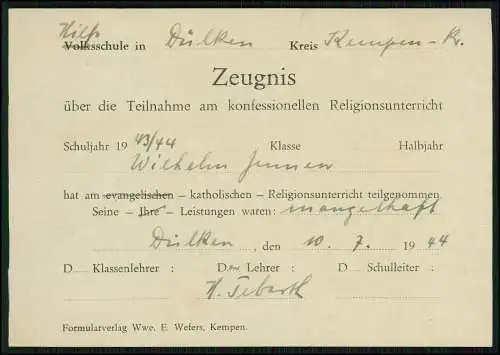 Hilfs
Volksschule in Dülken Kreis Kempen-Kr.
Zeugnis
über die Teilnahme am konfessionellen Religionsunterricht
Schuljahr 19 43/44 Klasse Halbjahr
Wilhelm
hat am evangelischen – katholischen – Religionsunterricht teilgenommen
Seine – Ihre – Leistungen waren: mangelhaft
Dülken, den 10. 7. 1944
D Klassenlehrer : D Lehrer : D Schulleiter :
H. Tebarth
Formularverlag Wwe. E. Wefers, Kempen.